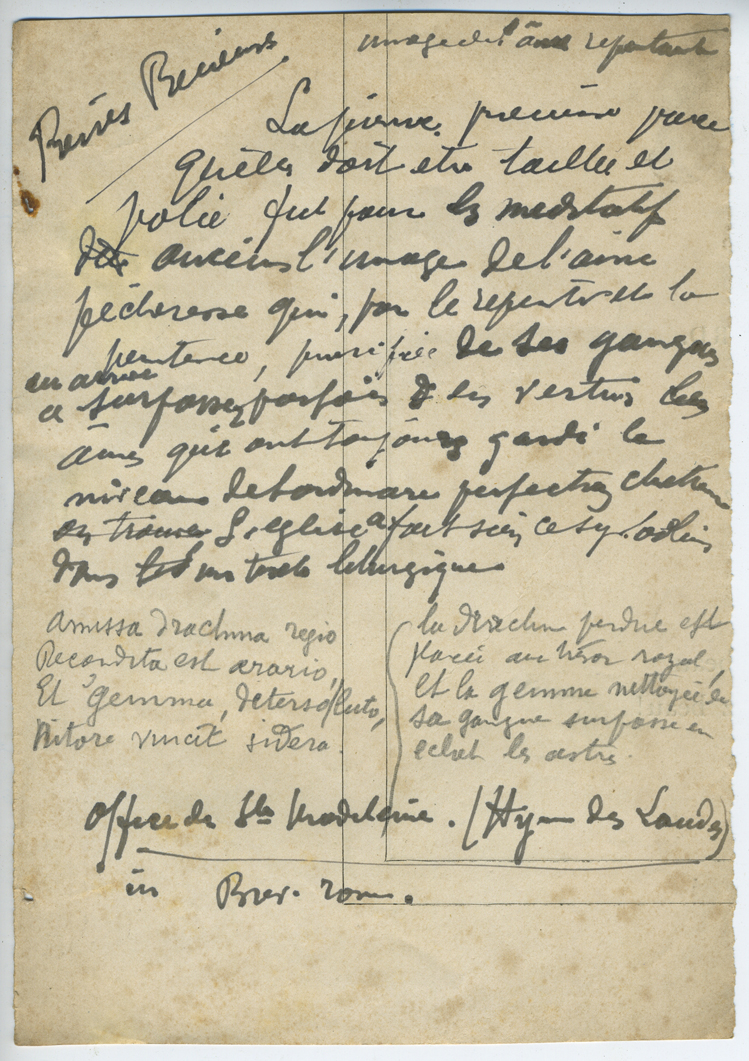 Pierres Précieuses
image de l'âme repentante
La pierre précieuse parce
qu'elle doit etre taillée et
polie fut pour les méditatifs
anciens l'image de l'ame
pécheresse qui, par le repentir et la
penitence, purifiée de ses gangues
en arrive
a surpasser parfois des vertus les
âmes qui ont toujours gardé le
niveau de l'ordinaire perfection chretienne
L'eglise a fait sien ce symbolisme
dans textes liturgiques
Amissa drachma regio
Recondita est aerario,
Et gemma, deterso luto,
Nitore vincit sidera.
la drachme perdue est
placée au trésor royal,
et la gemme nettoyée de
sa gangue surpasse en
eclat les astres.
Office de Ste Madeleine. (Hymne des Laudes)
in Brev. rom.